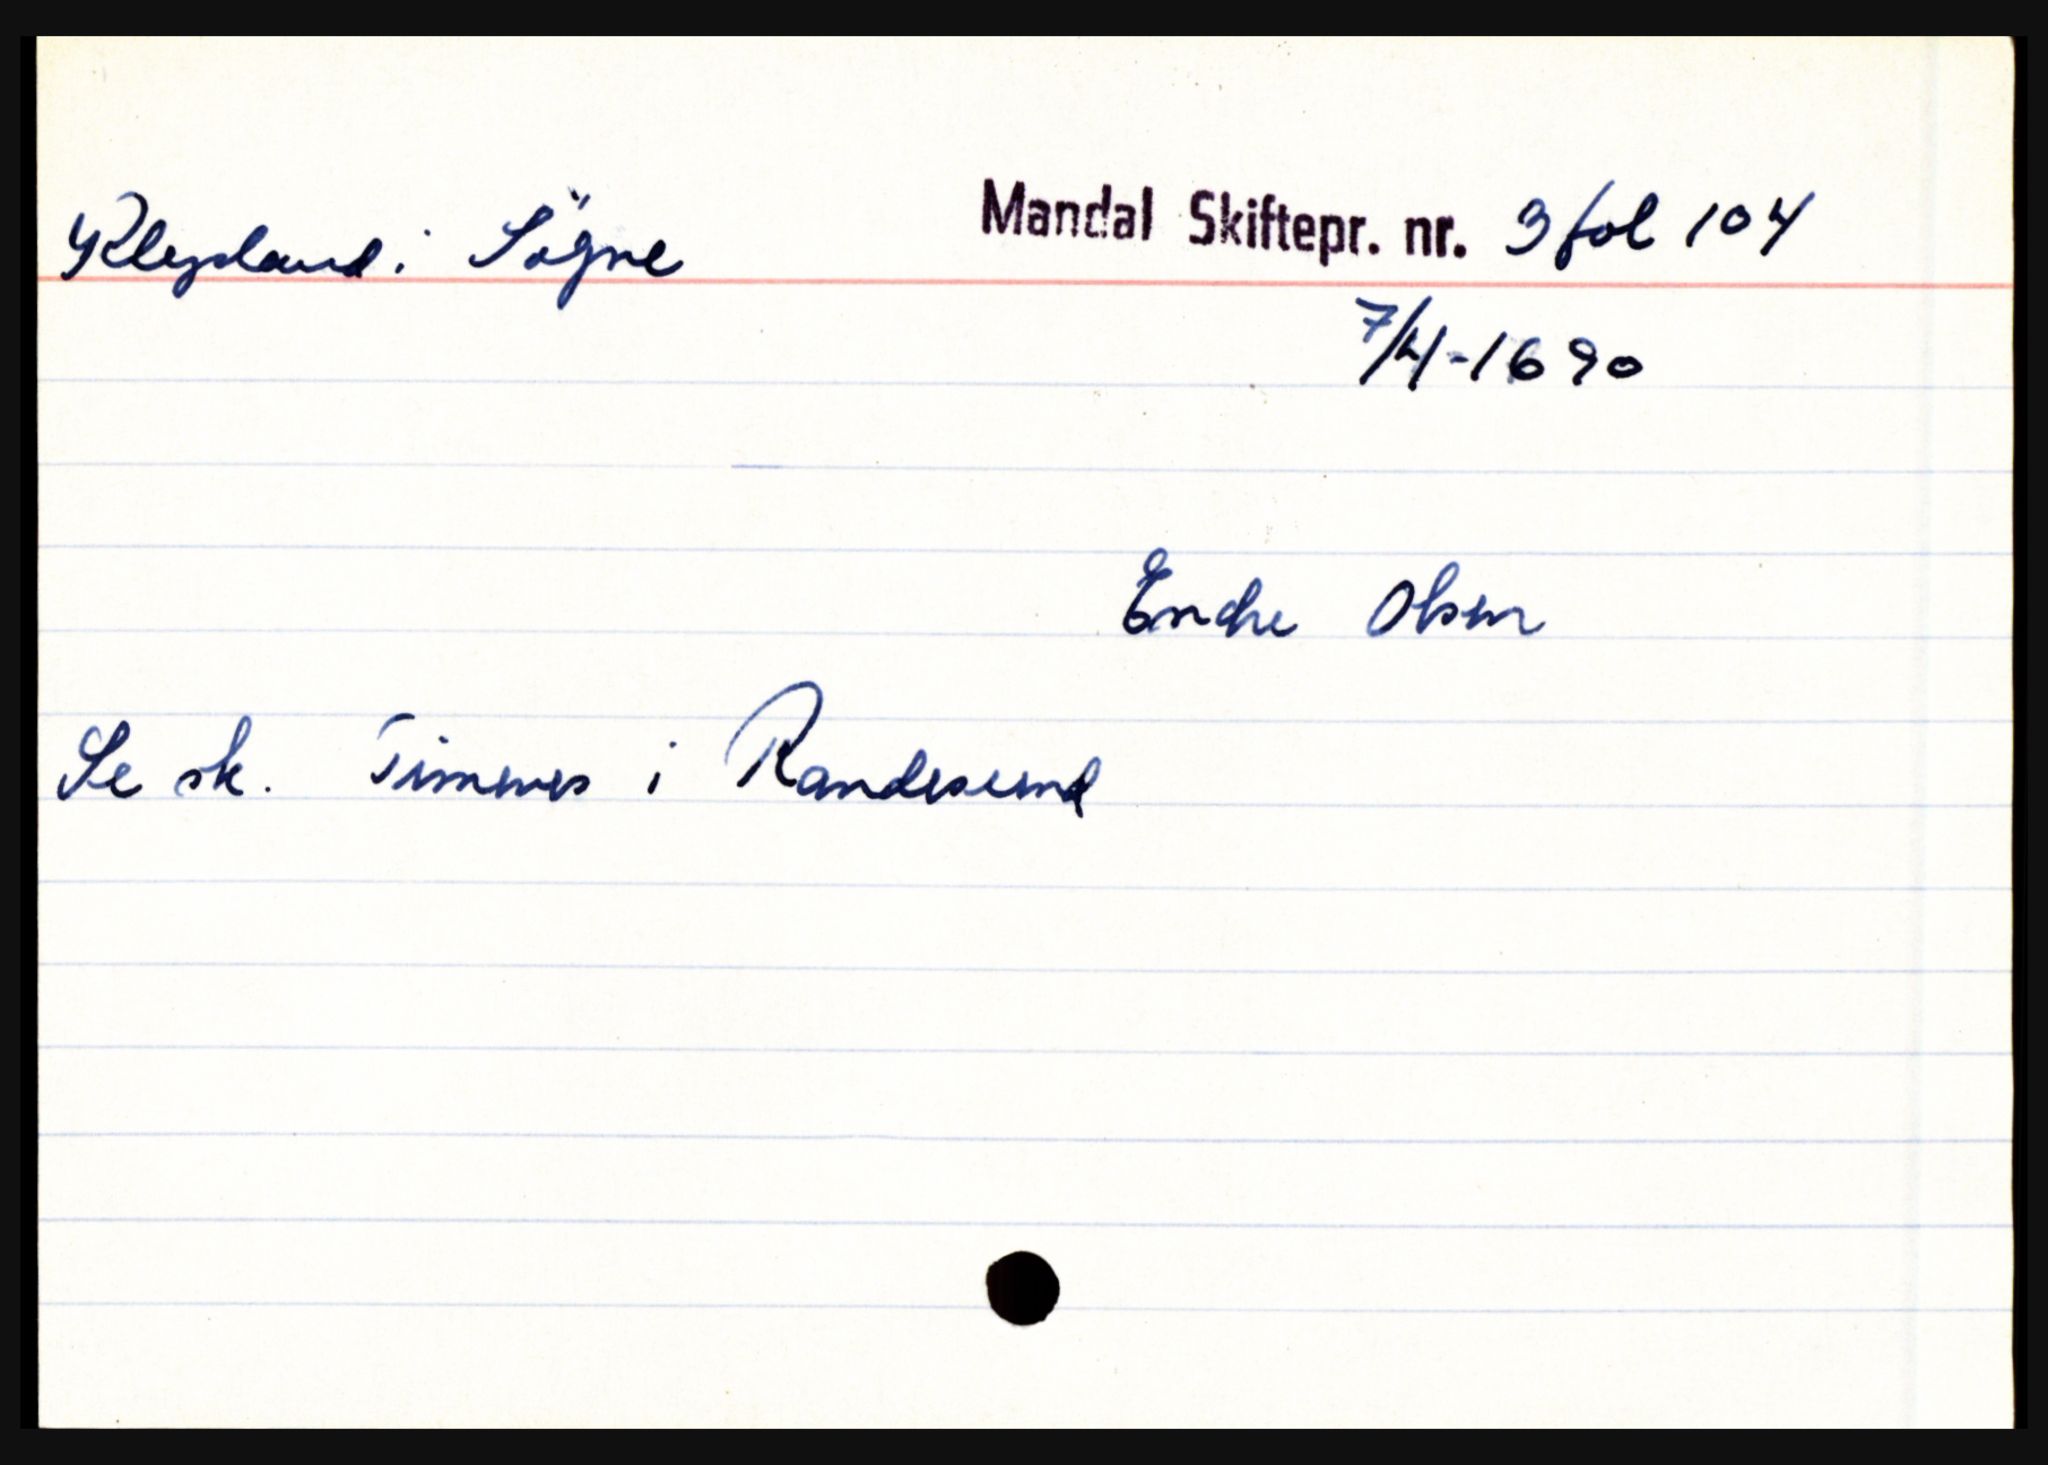 Klepland i Sögne Mandal Skiftepr. nr. 3 fol 104
7/4-1690
Endre Olsen
Se sk. Timenes i Randesund